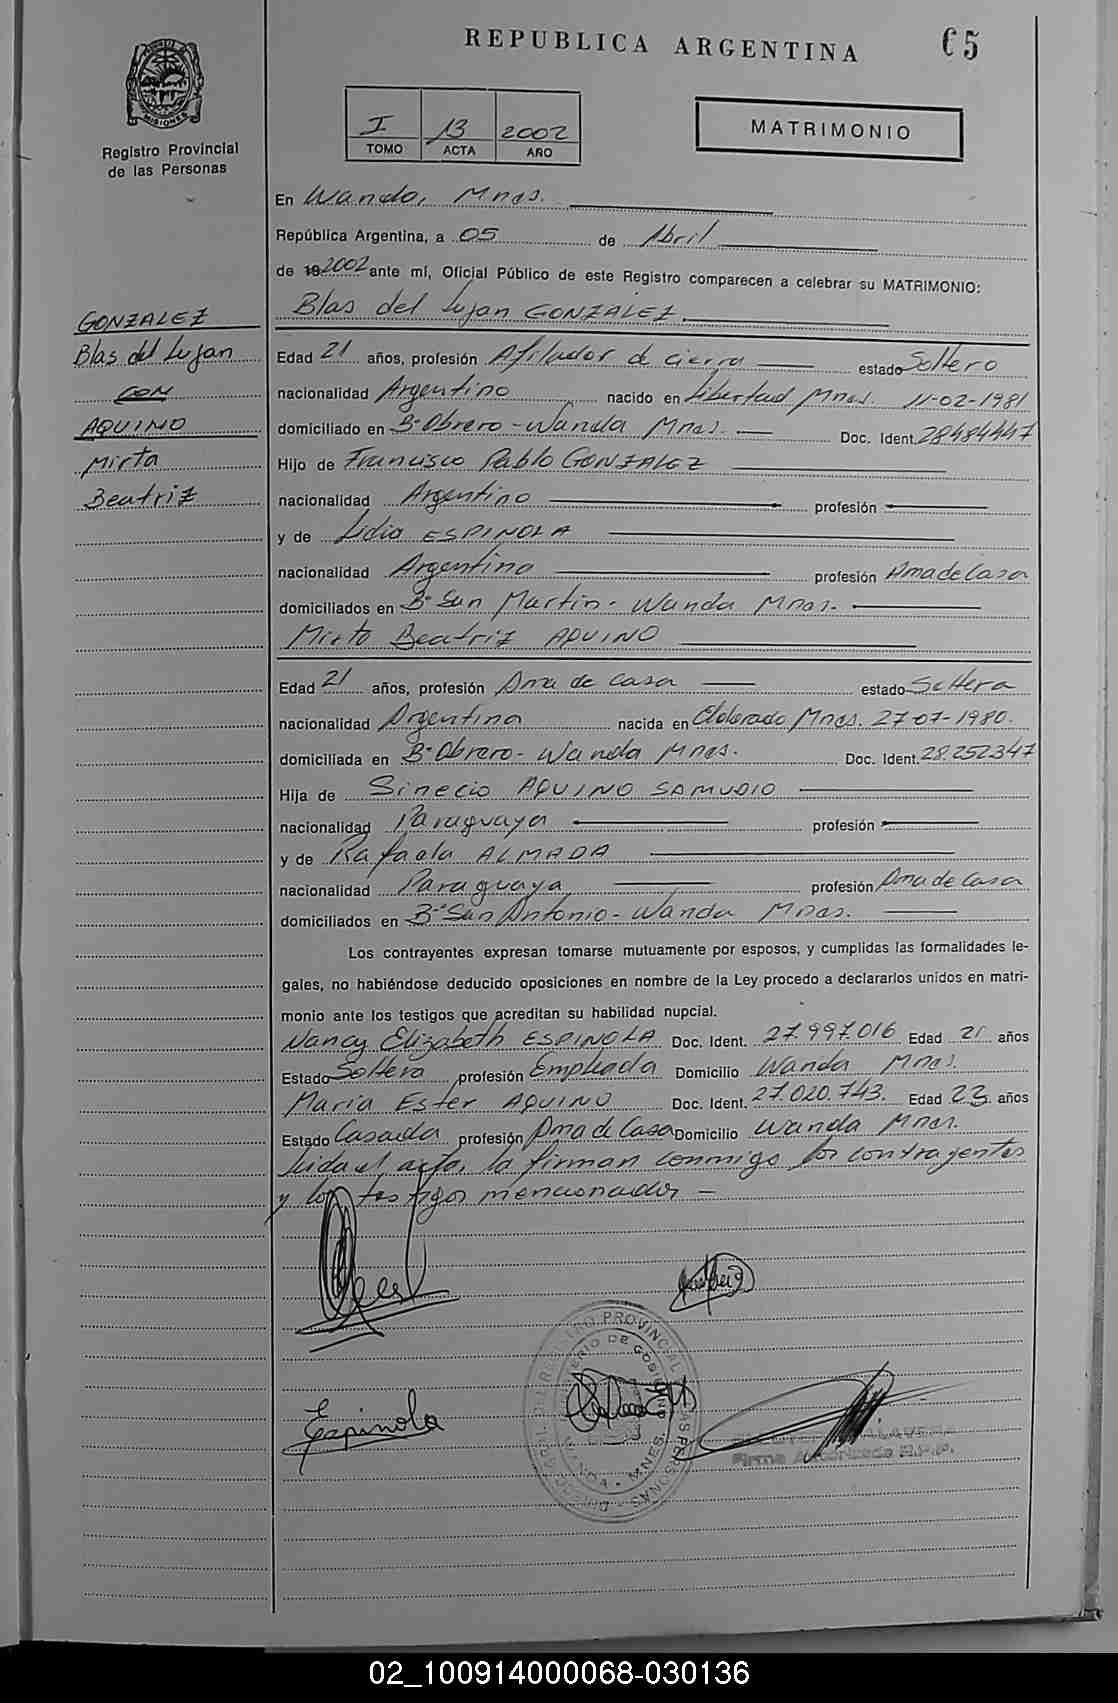 REPUBLICA ARGENTINA
65
MISIONES
Registro Provincial
de las Personas
I 13 2002
TOMO ACTA AÑO
MATRIMONIO
En Wanda, Mnes.
República Argentina, a 05 de Abril
de 19 2002 ante mí, Oficial Público de este Registro comparecen a celebrar su MATRIMONIO:
Blas del Lujan GONZALEZ.
GONZALEZ
Blas del Lujan
CON
AQUINO
Mirta
Beatriz
Edad 21 años, profesión Afilador de cierra estado Soltero
nacionalidad Argentino nacido en Libertad Mnes. 11-02-1981
domiciliado en Bº Obrero - Wanda Mnes. Doc. Ident. 28484447
Hijo de Francisco Pablo GONZALEZ
nacionalidad Argentino profesión
y de Lidia ESPINOLA
nacionalidad Argentina profesión Ama de Casa
domiciliados en Bº San Martin - Wanda Mnes.
Mirta Beatriz AQUINO
Edad 21 años, profesión Ama de Casa estado Soltera
nacionalidad Argentina nacida en Eldorado Mnes. 27-07-1980.
domiciliada en Bº Obrero - Wanda Mnes. Doc. Ident. 28.252347
Hija de Sinecio AQUINO SAMUDIO
nacionalidad Paraguaya profesión
y de Rafaela ALMADA
nacionalidad Paraguaya profesión Ama de Casa
domiciliados en Bº San Antonio - Wanda Mnes.
Los contrayentes expresan tomarse mutuamente por esposos, y cumplidas las formalidades le-
gales, no habiéndose deducido oposiciones en nombre de la Ley procedo a declararlos unidos en matri-
monio ante los testigos que acreditan su habilidad nupcial.
Nancy Elizabeth ESPINOLA Doc. Ident. 27.997.016 Edad 21 años
Estado Soltera profesión Empleada Domicilio Wanda Mnes.
Maria Ester AQUINO Doc. Ident. 27.020.743. Edad 23 años
Estado Casada profesión Ama de Casa Domicilio Wanda Mnes.
Leida el acta, la firman conmigo los contrayentes
y los testigos mencionados -
Espinola
REGISTRO PROVINCIAL DE LAS PERSONAS
MINISTERIO DE GOBIERNO
WANDA - MNES.
Firma Autorizada R.P.P.
02_100914000068-030136